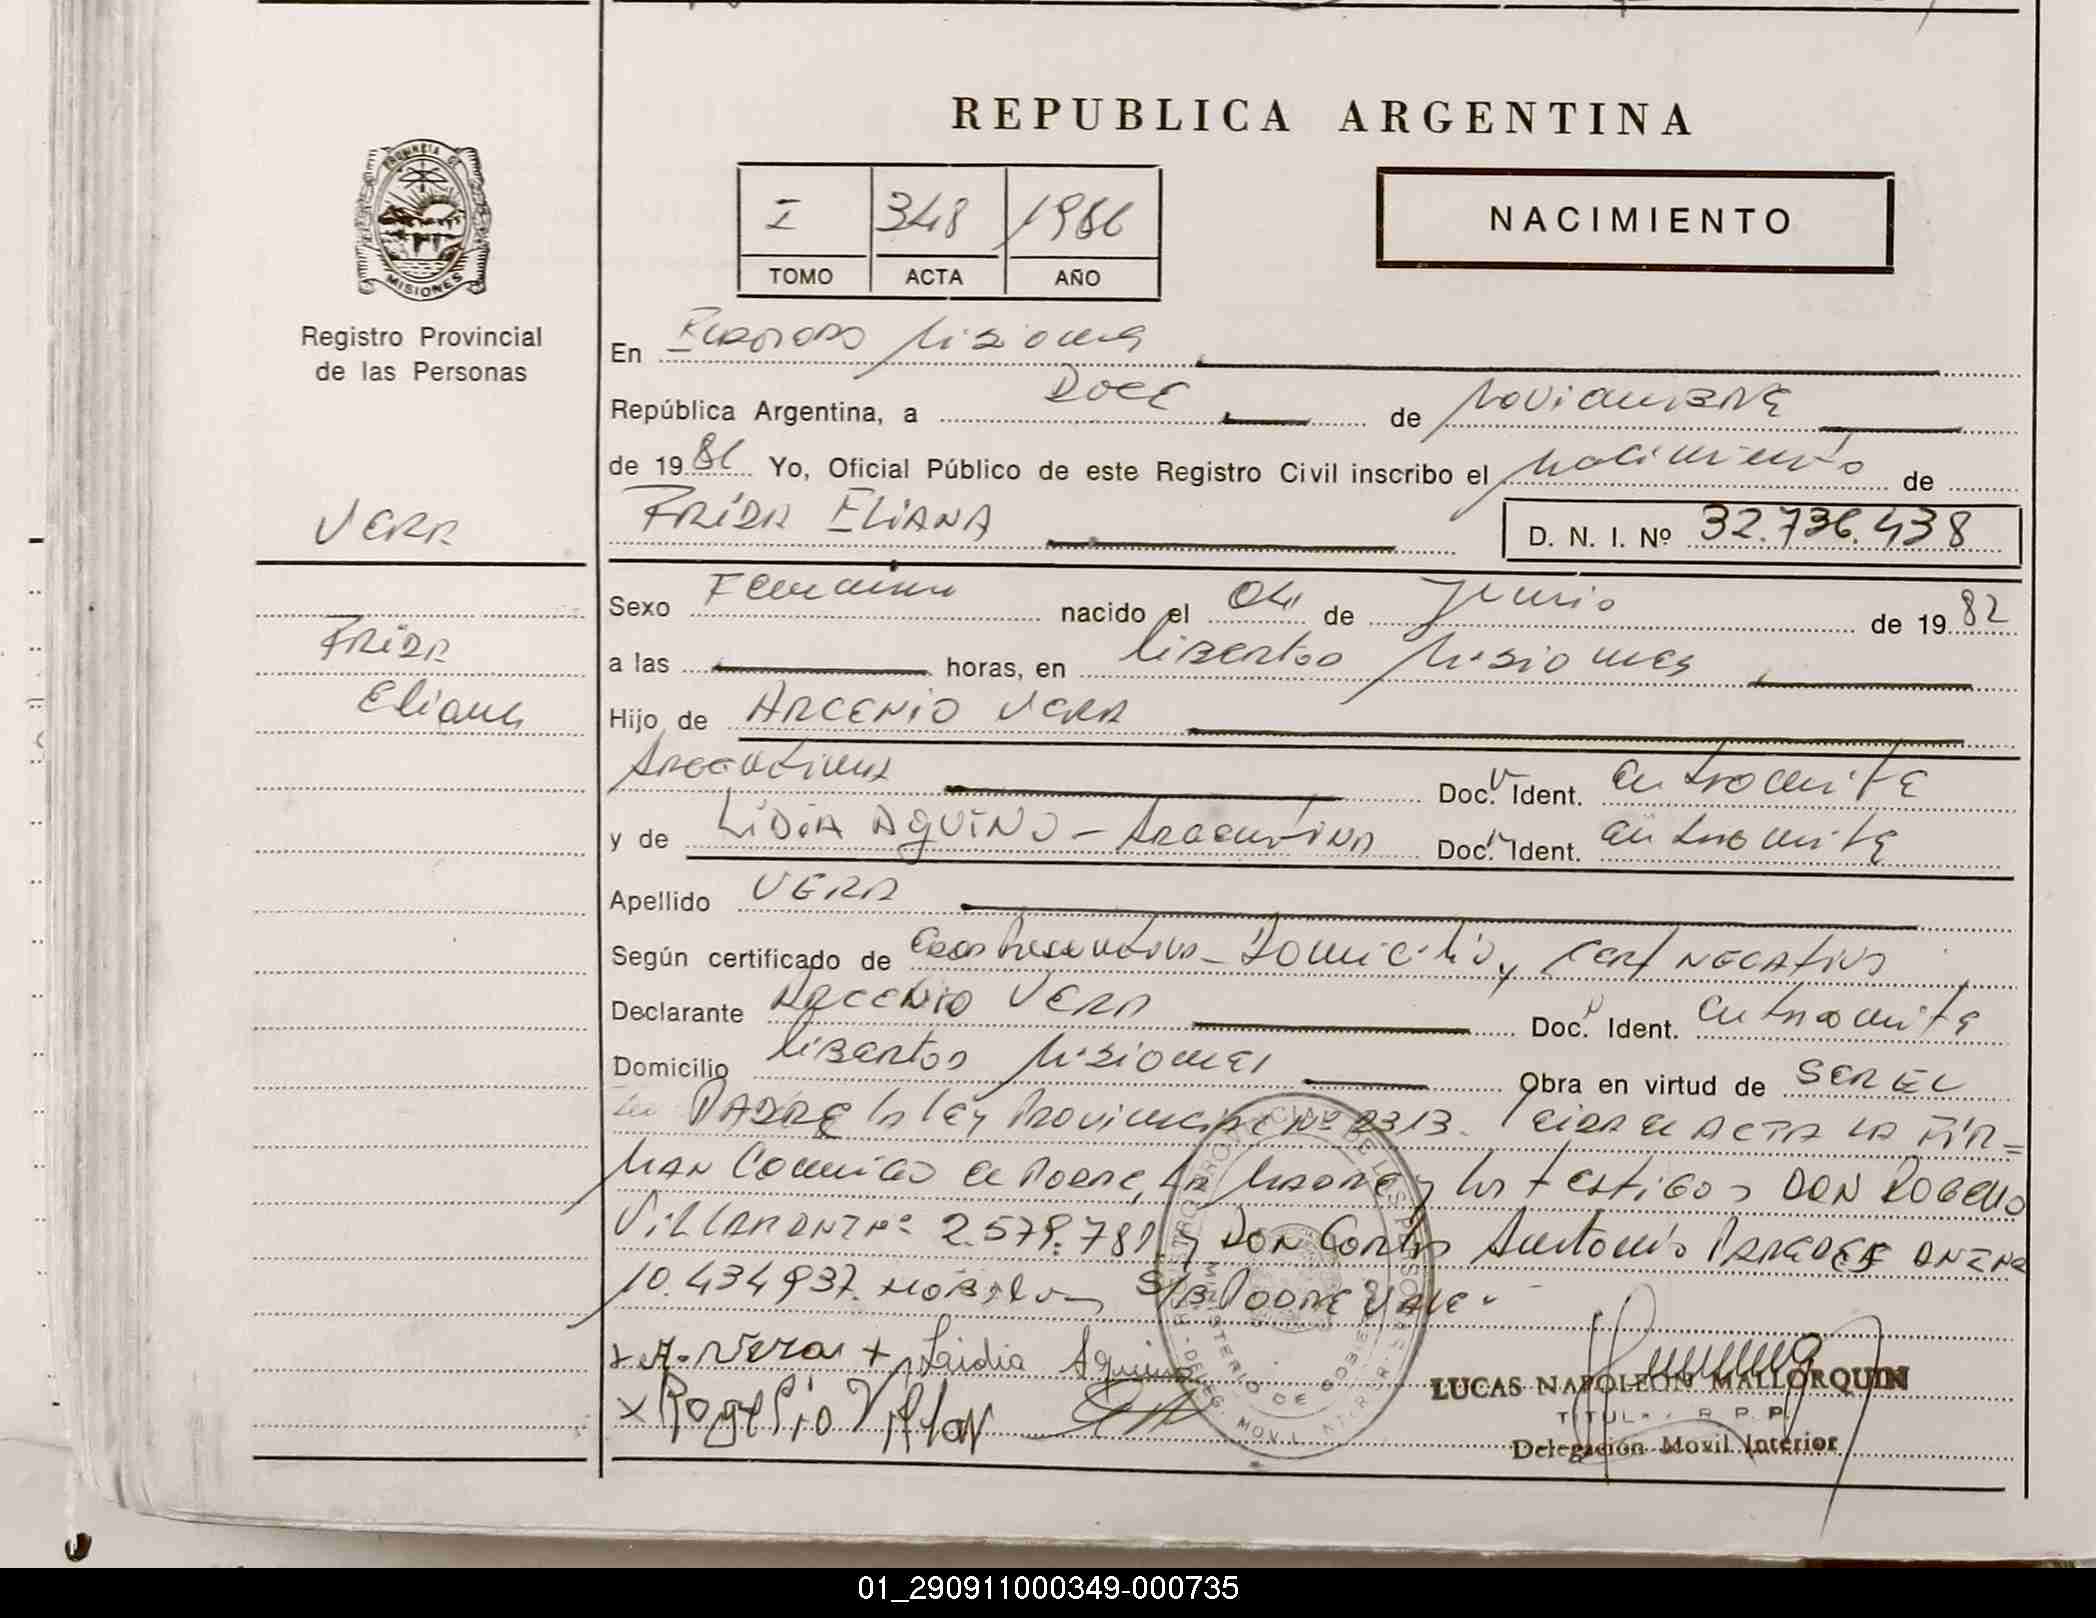 REPUBLICA ARGENTINA
I 348 1986
TOMO ACTA AÑO
NACIMIENTO
PROVINCIA DE
MISIONES
Registro Provincial
de las Personas
En Eldorado Misiones
República Argentina, a Doce de Noviembre
de 1986 Yo, Oficial Público de este Registro Civil inscribo el Nacimiento de
VERA
FRIDA ELIANA D. N. I. Nº 32.736.438
Frida
Eliana
Sexo Femenino nacido el 04 de Junio de 1982
a las horas, en Libertad Misiones
Hijo de ARCENIO VERA
Argentina Doc. Ident. en tramite
y de LIDIA AQUINO - Argentina Doc. Ident. en tramite
Apellido VERA
Según certificado de Domicilio y cert NEGATIVO
Declarante ARCENIO VERA Doc. Ident. en tramite
Domicilio Libertad Misiones Obra en virtud de SER EL
PADRE la ley Provincial Nº 2313. Leida el ACTA LA FIR=
MAN Conmigo el Padre, la Madre y los testigos DON
2.579.781 y DON Carlos Antonio
10.434.937. S/B Padre VALE
A. Vera + Lidia Aquino
x Rogelio
LUCAS NAPOLEON MALLORQUIN
TITULAR R. P. P.
Delegación Movil Interior
01_290911000349-000735